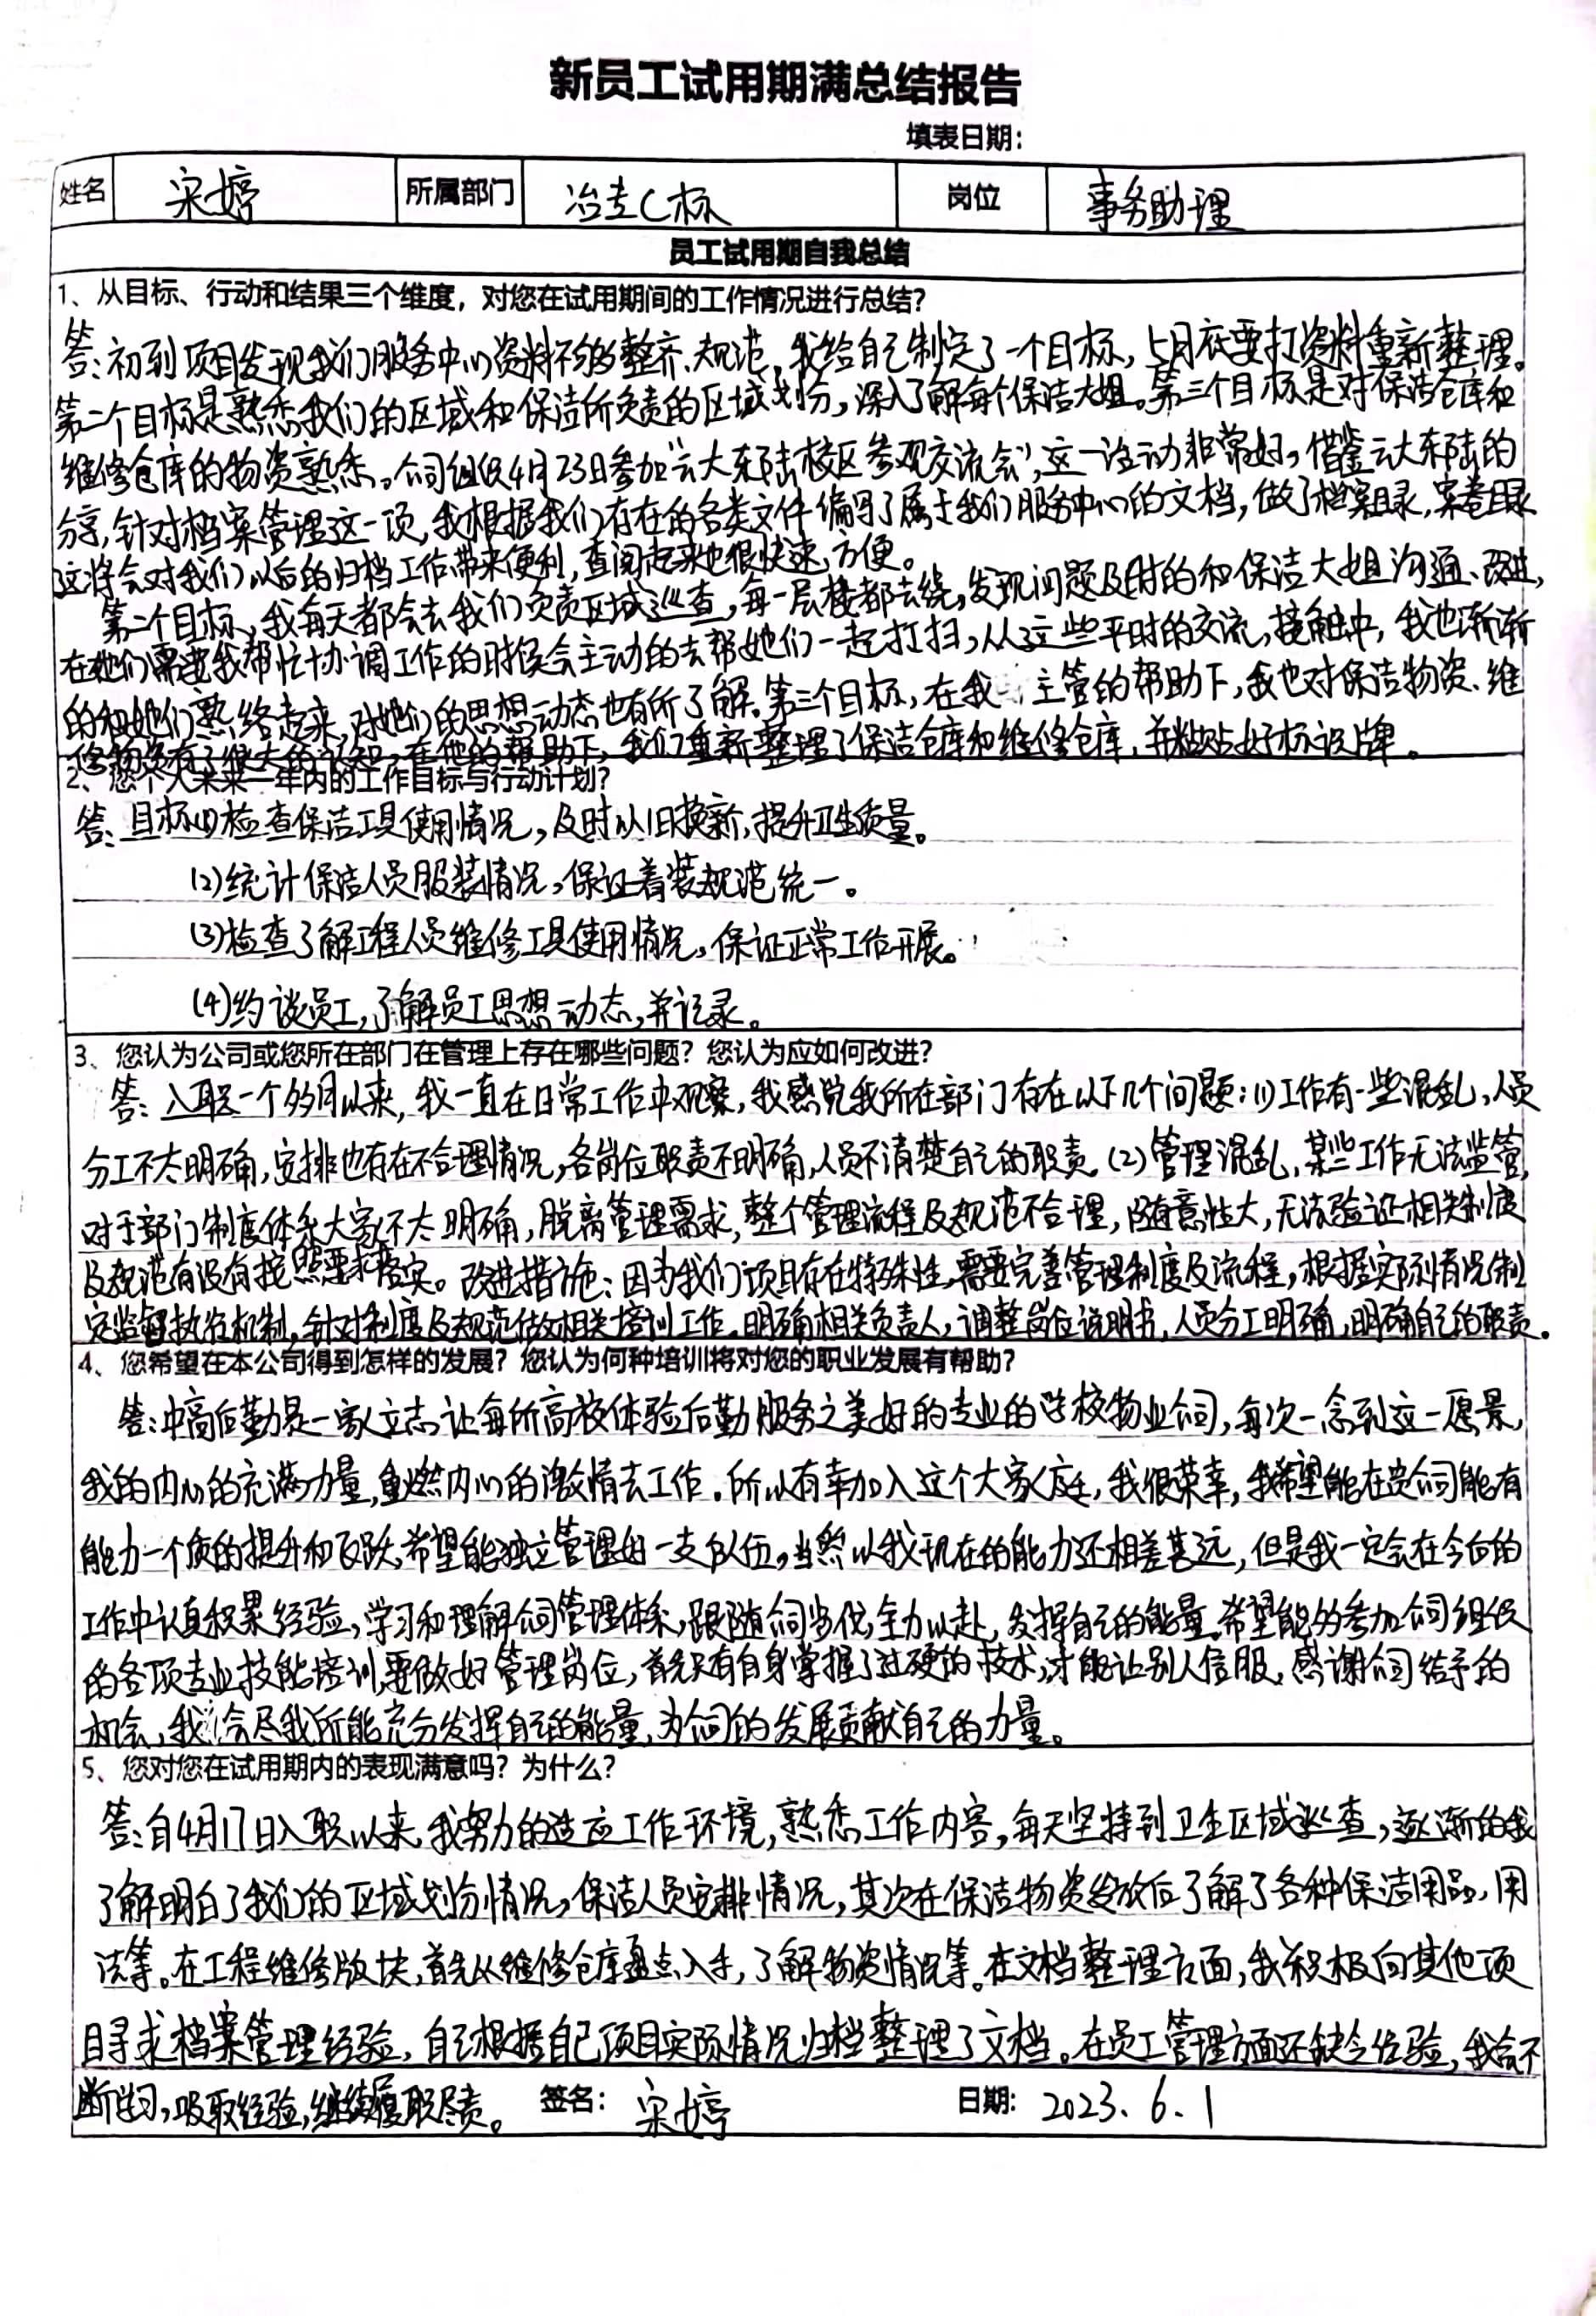 新员工试用期满总结报告
填表日期：
姓名 宋婷 所属部门 冶专C标 岗位 事务助理
员工试用期自我总结
1、从目标、行动和结果三个维度，对您在试用期间的工作情况进行总结？
答：初到项目发现我们服务中心资料不够整齐、规范，我给自己制定了一个目标，5月底要打资料重新整理。
第二个目标是熟悉我们的区域和保洁所负责的区域划分，深入了解每个保洁大姐。第三个目标是对保洁仓库和
维修仓库的物资熟悉。公司组织4月23日参加“云大东陆校区参观交流会”，这一活动非常好。借鉴云大东陆的
分享，针对档案管理这一项，我根据我们存在的各类文件编写了属于我们服务中心的文档，做了档案目录，案卷目录
这将会对我们以后的归档工作带来便利，查阅起来也很快速、方便。
第二个目标，我每天都会去我们负责区域巡查，每一层楼都去绕，发现问题及时的和保洁大姐沟通、改进，
在她们需要我帮忙协调工作的时候会主动的去帮她们一起打扫，从这些平时的交流，接触中，我也渐渐
的和她们熟络起来，对她们的思想动态也有所了解。第三个目标，在我 主管的帮助下，我也对保洁物资、维
修物资有了很大的认知，在他的帮助下，我们重新整理了保洁仓库和维修仓库，并粘贴好标识牌。
2、您个人未来一年内的工作目标与行动计划？
答：目标(1)检查保洁工具使用情况，及时以旧换新，提升卫生质量。
(2)统计保洁人员服装情况，保证着装规范统一。
(3)检查了解工程人员维修工具使用情况，保证正常工作开展。
(4)约谈员工，了解员工思想动态，并记录。
3、您认为公司或您所在部门在管理上存在哪些问题？您认为应如何改进？
答：入职一个多月以来，我一直在日常工作中观察，我感觉我所在部门存在以下几个问题：(1)工作有一些混乱，人员
分工不太明确，安排也存在不合理情况，各岗位职责不明确，人员不清楚自己的职责。(2)管理混乱，某些工作无法监管，
对于部门制度体系大家不太明确，脱离管理需求，整个管理流程及规范不合理，随意性大，无法验证相关制度
及规范有没有按照要求落实。改进措施：因为我们项目存在特殊性，需要完善管理制度及流程，根据实际情况制
定监督执行机制，针对制度及规范做相关培训工作。明确相关负责人，调整岗位说明书，人员分工明确，明确自己的职责。
4、您希望在本公司得到怎样的发展？您认为何种培训将对您的职业发展有帮助？
答：中高后勤是一家立志让每所高校体验后勤服务之美好的专业的学校物业公司，每次一念到这一愿景，
我的内心的充满力量，重燃内心的激情去工作。所以有幸加入这个大家庭，我很荣幸，我希望能在贵公司能有
能力一个质的提升和飞跃，希望能独立管理好一支队伍，当然以我现在的能力还相差甚远，但是我一定会在今后的
工作中认真积累经验，学习和理解公司管理体系，跟随公司步伐，全力以赴，发挥自己的能量。希望能够参加公司组织
的各项专业技能培训，要做好管理岗位，首先只有自身掌握了过硬的技术，才能让别人信服。感谢公司给予的
机会，我会尽我所能充分发挥自己的能量，为公司的发展贡献自己的力量。
5、您对您在试用期内的表现满意吗？为什么？
答：自4月17日入职以来，我努力的适应工作环境，熟悉工作内容，每天坚持到卫生区域巡查，逐渐的我
了解明白了我们的区域划分情况，保洁人员安排情况，其次在保洁物资发放后了解了各种保洁用品，用
法等。在工程维修版块，首先从维修仓库盘点入手，了解物资情况等。在文档整理方面，我积极向其他项
目寻求档案管理经验，自己根据自己项目实际情况归档整理了文档。在员工管理方面还缺乏经验，我会不
断学习，吸取经验，继续履职尽责。 签名： 宋婷 日期： 2023.6.1